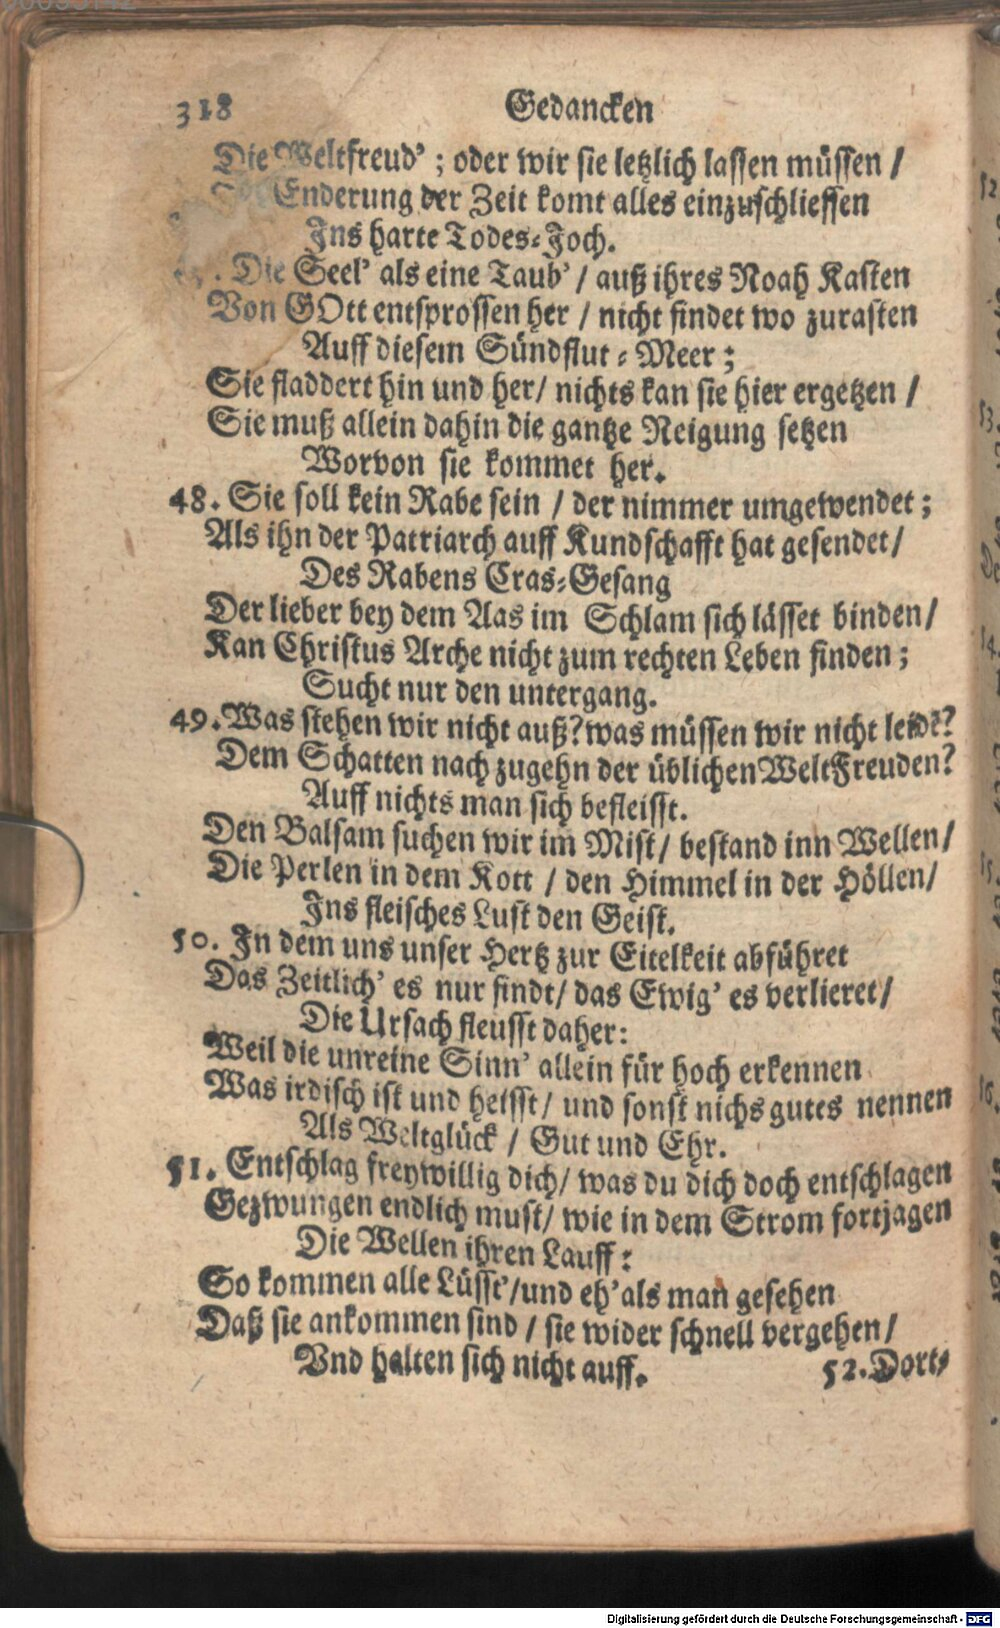 318 Gedancken
Die Weltfreud’ ; oder wir sie letzlich lassen müssen /
Enderung der Zeit komt alles einzuschliessen
Ins harte Todes-Joch.
Die Seel’ als eine Taub’ / auß ihres Noah Kasten
Von GOtt entsprossen her / nicht findet wo zurasten
Auff diesem Sündflut-Meer ;
Sie fladdert hin und her/ nichts kan sie hier ergetzen /
Sie muß allein dahin die gantze Neigung setzen
Worvon sie kommet her.
48. Sie soll kein Rabe sein / der nimmer umgewendet ;
Als ihn der Patriarch auff Kundschafft hat gesendet/
Des Rabens Cras-Gesang
Der lieber bey dem Aas im Schlam sich lässet binden/
Kan Christus Arche nicht zum rechten Leben finden ;
Sucht nur den untergang.
49. Was stehen wir nicht auß? was müssen wir nicht leidē?
Dem Schatten nachzugehn der üblichen WeltFreuden?
Auff nichts man sich befleisst.
Den Balsam suchen wir im Mist/ bestand inn Wellen/
Die Perlen in dem Kott / den Himmel in der Höllen/
Ins fleisches Lust den Geist.
50. In dem uns unser Hertz zur Eitelkeit abführet
Das Zeitlich’ es nur findt/ das Ewig’ es verlieret/
Die Ursach fleusst daher:
Weil die unreine Sinn’ allein für hoch erkennen
Was irdisch ist und heisst/ und sonst nichs gutes nennen
Als Weltglück / Gut und Ehr.
51. Entschlag freywillig dich/ was du dich doch entschlagen
Gezwungen endlich must/ wie in dem Strom fortjagen
Die Wellen ihren Lauff:
So kommen alle Lüsst’/und eh’ als man gesehen
Daß sie ankommen sind / sie wider schnell vergehen/
Vnd halten sich nicht auff.
52. Dort-
Digitalisierung gefördert durch die Deutsche Forschungsgemeinschaft - DFG